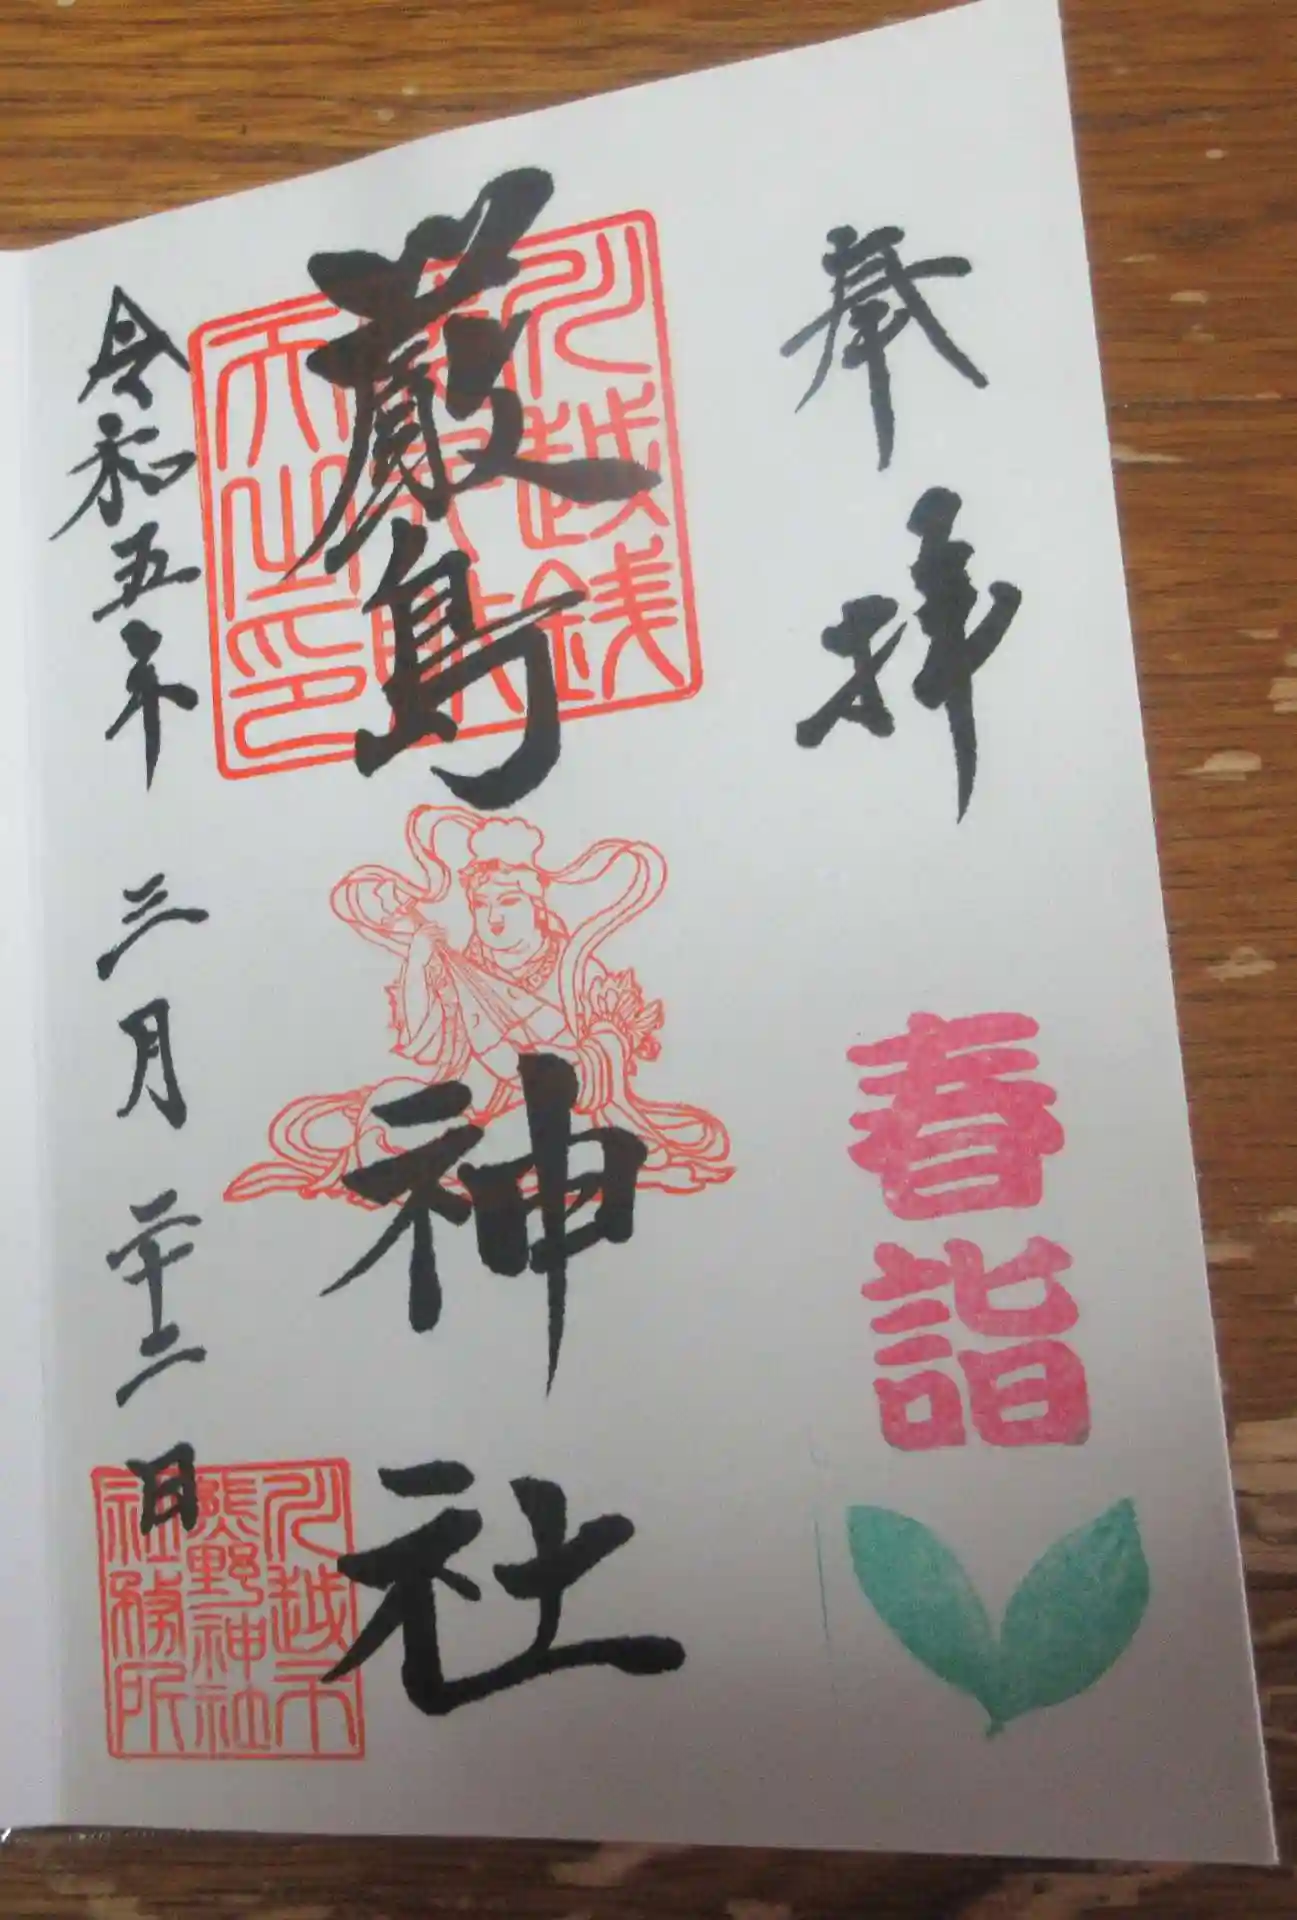 奉拝
春詣
厳島神社
川越銭洗弁財天之印
令和五年三月二十二日
川越市熊野神社社務所